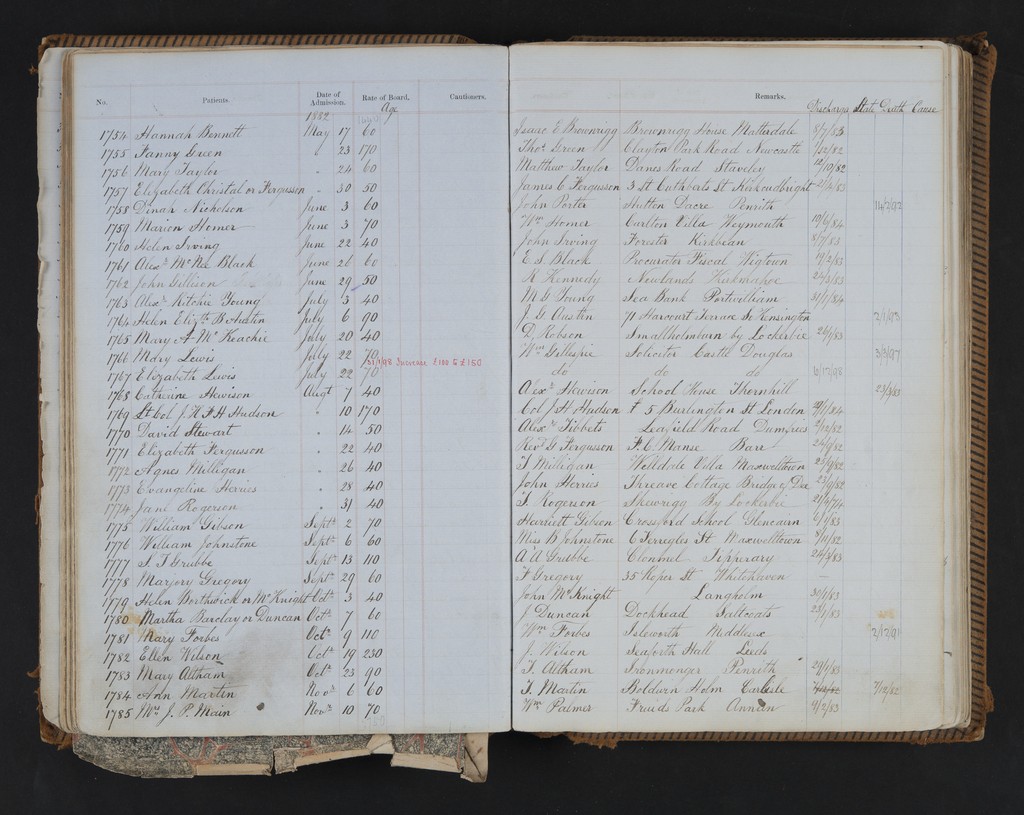 No. Patients. Date of Admission. Rate of Board. Cautioners. Remarks.
Age Discharge State Death Cause
1882
1754 Hannah Bennett May 17 60 Isaac E Brownrigg Brownrigg House Matterdale 8/7/83
1755 Fanny Green " 23 170 Thos. Green Clayton Park Road Newcastle 7/12/82
1756 Mary Taylor " 24 60 Matthew Taylor Danes Road Staveley 12/10/82
1757 Elizabeth Christal or Fergusson " 30 50 James C Fergusson 3 St Cuthberts St Kirkcudbright
1758 Dinah Nicholson June 3 60 John Porter Hutton Dacre Penrith 11/2/92
1759 Marion Homer June 3 70 Wm Homer Carlton Villa Weymouth 10/6/84
1760 Helen Irving June 22 40 John Irving Forester Kirkbean 8/7/83
1761 Alexr. McNeil Black June 26 60 E S Black Procurator Fiscal Wigtown 9/2/83
1762 John Gillison June 29 50 R Kennedy Newlands Kirkmahoe
1763 Alexr. Ritchie Young July 3 40 M G Young Sea Bank Portwilliam 31/1/84
1764 Helen Elizth. B Austin July 6 90 J. G Austin 71 Harcourt Terrace S. Kensington 2/1/93
1765 Mary A McKeachie July 20 40 D. Robson Smallholmburn by Lockerbie
1766 Mary Lewis July 22 70 Wm Gillespie Solicitor Castle Douglas 3/3/97
31/1/98 Increase £100 to £150
1767 Elizabeth Lewis July 22 70 do do do 6/12/98
1768 Catherine Hewison Augt 7 40 Alexr. Hewison School House Thornhill 23/3/83
1769 Lt Col J. H F H Hudson " 10 170 Col J H Hudson 5 Burlington St London
1770 David Stewart " 14 50 Alexr. Tibbets Leafield Road Dumfries
1771 Elizabeth Fergusson " 22 40 Revd. G Fergusson F. C. Manse 24/9/82
1772 Agnes Milligan " 26 40 T Milligan Welldale Villa Maxwelltown
1773 Evangeline Herries " 28 40 John Herries Threave Cottage Bridge of Dee 23/9/82
1774 Jane Rogerson " 31 40 T. Rogerson Skewrigg By Lockerbie
1775 William Gibson Septr. 2 70 Harriett Gibson Crossford School Glencairn
1776 William Johnstone Septr. 6 60 Miss B Johnstone Terregles St Maxwelltown
1777 S. T Grubbe Septr. 13 110 A A Grubbe Clonmel Tipperary
1778 Marjory Gregory Septr. 29 60 F Gregory 35 Roper St Whitehaven –
1779 Helen Borthwick or McKnight Octr. 3 40 John McKnight Langholm 30/1/83
1780 Martha Barclay or Duncan Octr. 7 60 J Duncan Dockhead Saltcoats 23/1/83
1781 Mary Forbes Octr. 9 110 Wm Forbes Isleworth Middlesex 2/12/91
1782 Ellen Wilson Octr. 19 230 J. Wilson Seaforth Hall Leeds
1783 Mary Altham Octr. 23 90 T. Altham Ironmonger Penrith 29/1/83
1784 Ann Martin Novr. 6 60 T. Martin Boldwin Holm Carlisle 7/12/82 7/12/82
1785 Mrs J. P. Main Novr. 10 70 Wm Palmer Friends Park Annan 4/2/83